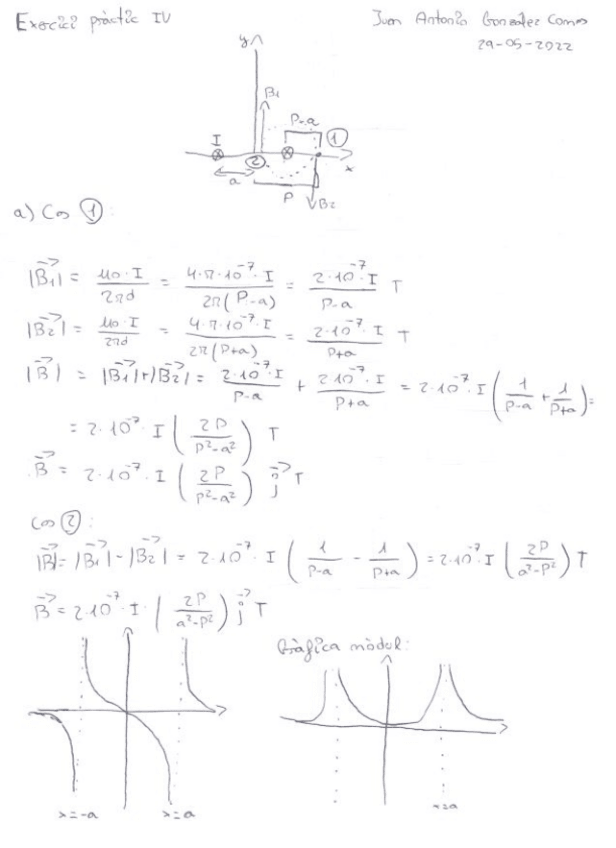 Exercici pràctic IV
Juan Antonio Gonzalez Comos
29-05-2022
y
B1
P-a
I
①
②
x
a
P
B2
a) Cas ①:
|B⃗1| = μ0·I / 2πd = 4·π·10^-7·I / 2π(P-a) = 2·10^-7·I / P-a T
|B⃗2| = μ0·I / 2πd = 4·π·10^-7·I / 2π(P+a) = 2·10^-7·I / P+a T
|B⃗| = |B⃗1|+|B⃗2| = 2·10^-7·I / P-a + 2·10^-7·I / P+a = 2·10^-7·I (1/P-a + 1/P+a) =
= 2·10^-7 I (2P / P²-a²) T
B⃗ = 2·10^-7·I (2P / P²-a²) j⃗ T
Cas ②:
|B⃗| = |B⃗1| - |B⃗2| = 2·10^-7·I (1/P-a - 1/P+a) = 2·10^-7·I (2P / a²-P²) T
B⃗ = 2·10^-7·I·(2P / a²-P²) j⃗ T
Gràfica mòdul:
x=-a
x=a
x=a